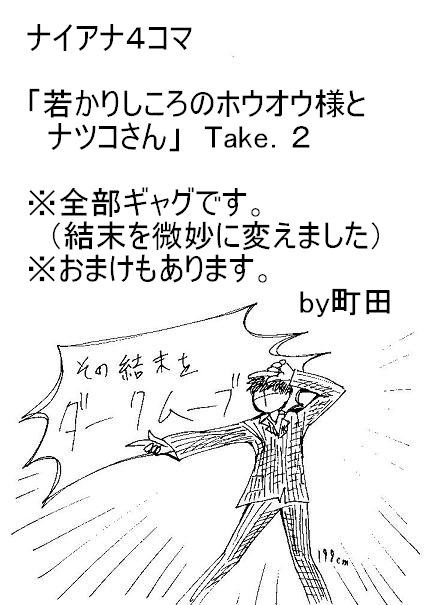 ナイアナ４コマ
「若かりしころのホウオウ様と
ナツコさん」 Take．２
※全部ギャグです。
（結末を微妙に変えました）
※おまけもあります。
by町田
その結末を
ダークムーブ
199cm